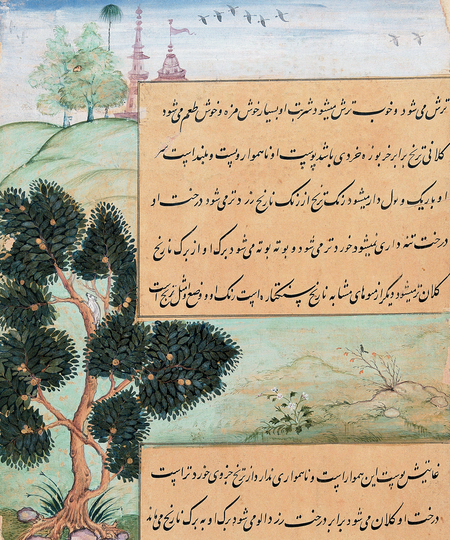 ترش می‌شود و خوب ترش میشود شربت او بسیار خوش مزه و خوش طعم می‌شود
کلانی ترنج برابر خربوزه خردی باشد پوست او ناهموار و پست و بلند است سر
او باریک و مول دار میشود رنک ترنج از رنک نارنج زرد تر می‌شود درخت او
درخت تنه داری نمیشود خورد تر می‌شود و بوته بوته می‌شود برک او از برک نارنج
کلان تر میشود دیکر از میوهای مشابه نارنج سنکتره است رنک او و وضع او مثل ترنج است
غایتش پوست این هموار است و ناهمواری ندارد از ترنج جزوی خورد تر است
درخت او کلان می‌شود برابر درخت زردالو می‌شود برک او به برک نارنج می‌ماند